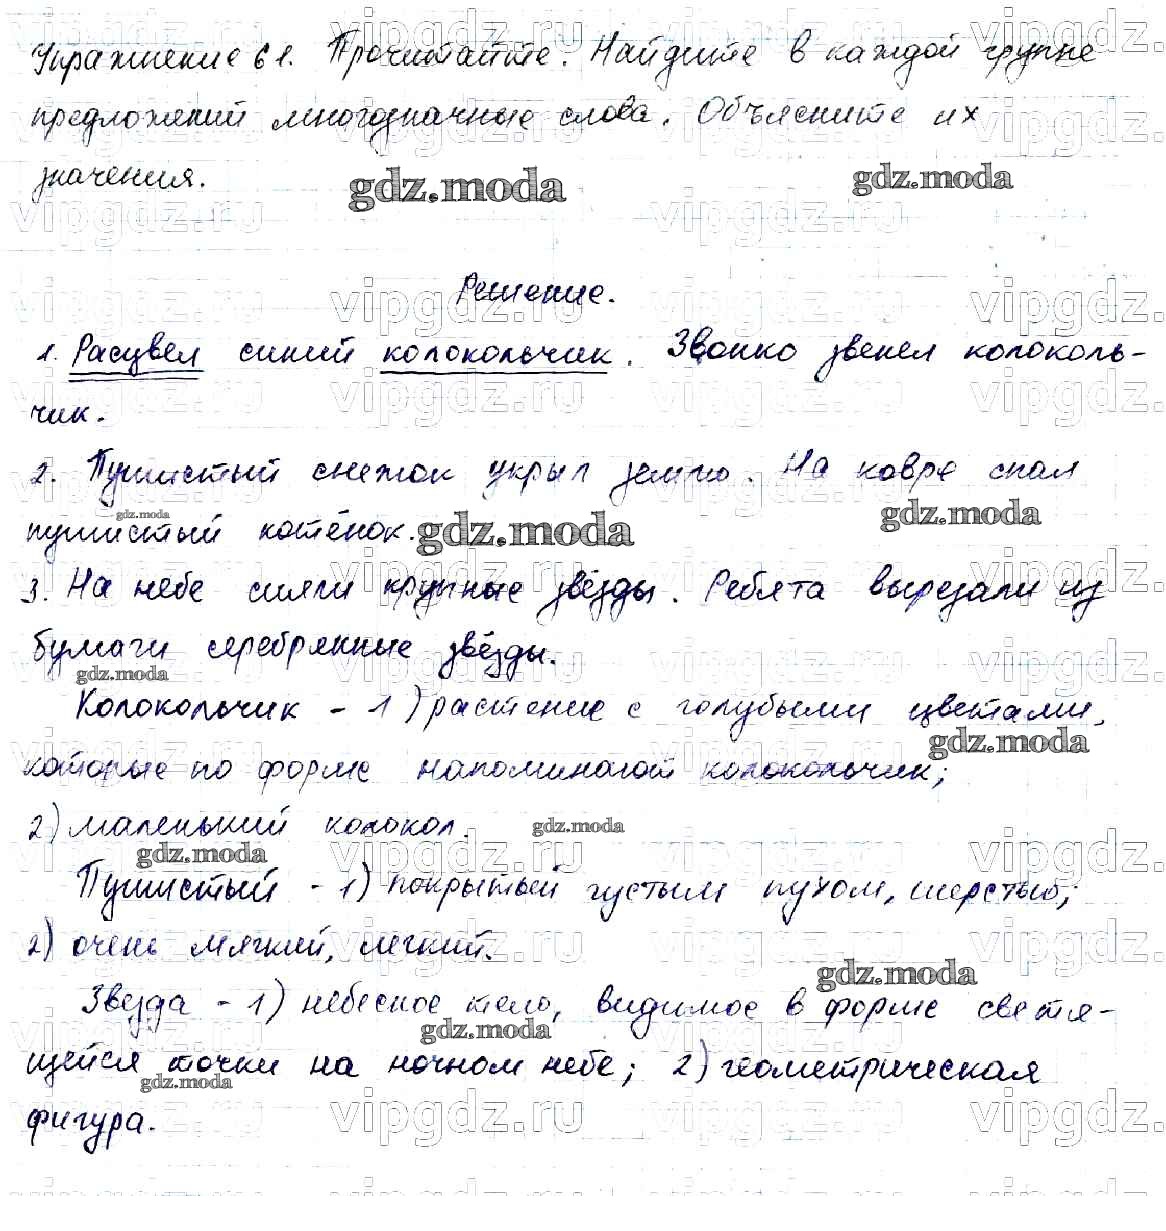 Упражнение 61. Прочитайте. Найдите в каждой группе
предложений многозначные слова. Объясните их
значения.
gdz.moda gdz.moda
Решение.
1. Расцвел синий колокольчик. Звонко звенел колоколь-
чик.
2. Пушистый снежок укрыл землю. На ковре спал
пушистый котёнок.
3. На небе сияли крупные звёзды. Ребята вырезали из
бумаги серебрянные звёзды.
Колокольчик - 1) растение с голубыми цветами,
которые по форме напоминают колокольчик;
2) маленький колокол.
Пушистый - 1) покрытый густым пухом, шерстью;
2) очень мягкий, легкий.
Звезда - 1) небесное тело, видимое в форме светя-
щейся точки на ночном небе; 2) геометрическая
фигура.